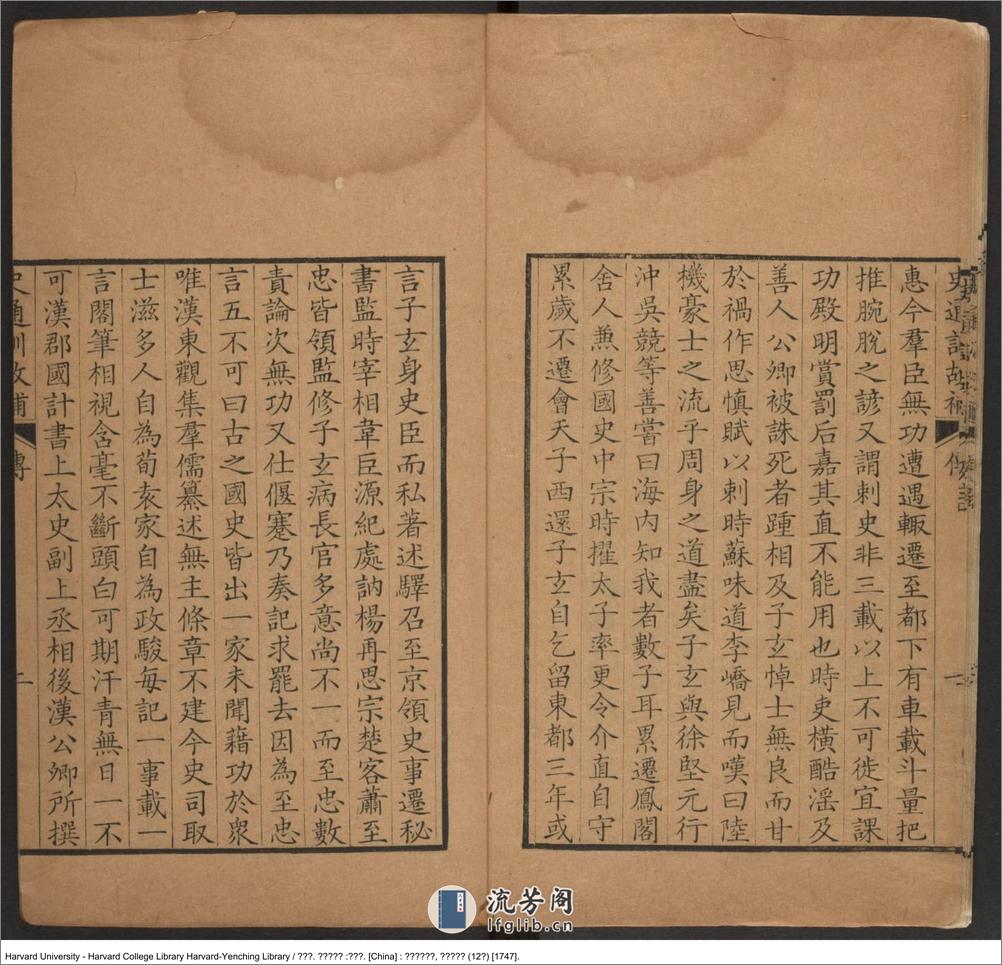 史通訓故補 傳
惠今羣臣無功遭遇輒遷至都下有車載斗量把
推腕脫之諺又謂刺史非三載以上不可徙宜課
功殿明賞罰后嘉其直不能用也時吏橫酷淫及
善人公卿被誅死者踵相及子玄悼士無良而甘
於禍作思慎賦以刺時蘇味道李嶠見而嘆曰陸
機豪士之流乎周身之道盡矣子玄與徐堅元行
沖吳競等善嘗曰海內知我者數子耳累遷鳳閣
舍人兼修國史中宗時擢太子率更令介直自守
累歲不遷會天子西還子玄自乞留東都三年或
言子玄身史臣而私著述驛召至京領史事遷秘
書監時宰相韋巨源紀處訥楊再思宗楚客蕭至
忠皆領監修子玄病長官多意尚不一而至忠數
責論次無功又仕偃蹇乃奏記求罷去因為至忠
言五不可曰古之國史皆出一家未聞藉功於衆
唯漢東觀集羣儒纂述無主條章不建今史司取
士滋多人自為荀袁家自為政駿每記一事載一
言閣筆相視含毫不斷頭白可期汗青無日一不
可漢郡國計書上太史副上丞相後漢公卿所撰
史通訓故補 傳 二
流芳阁
lfglib.cn
Harvard University - Harvard College Library Harvard-Yenching Library / ???. ????? :???. [China] : ??????, ????? (12?) [1747].